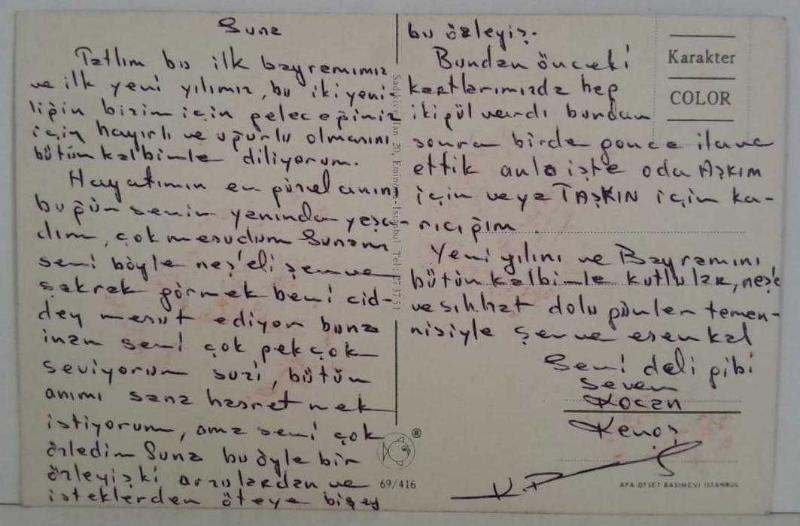 Suna
Tatlım bu ilk bayramımız
ve ilk yeni yılımız, bu iki yeni-
liğin bizim için geleceğimiz
için hayırlı ve uğurlu olmasını
bütün kalbimle diliyorum.
Hayatımın en güzel anını
bugün senin yanında yaşa-
dım, çok mesudum Sunam
seni böyle neş'eli şen ve
şakrak görmek beni cid-
dey mesut ediyor buna
inan seni çok pek çok
seviyorum suzi, bütün
anımı sana hasretmek
istiyorum, ama seni çok
özledim Suna bu öyle bir
özleyişki arzulardan ve
isteklerden öteye bişey
bu özleyiş.
Bundan önceki
kartlarımızda hep
iki gül vardı bundan
sonra birde gonce ilave
ettik anla işte oda AŞKIM
için veya TAŞKIN için ka-
rıcığım.
Yeni yılını ve Bayramını
bütün kalbimle kutlular, neş'e
ve sıhhat dolu günler temen-
nisiyle şen ve esen kal
Seni deli gibi
Seven
Kocan
Kenoş
Karakter
COLOR
Tel: 273751
®
69/416
APA OFSET BASIMEVİ İSTANBUL